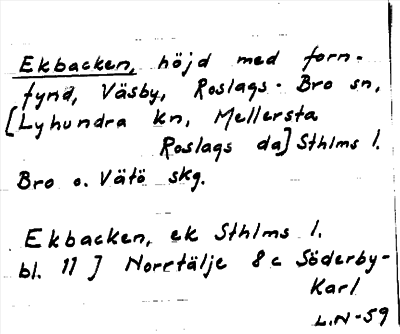 Ekbacken, höjd med forn-
fynd, Väsby, Roslags-Bro sn,
[Lyhundra kn, Mellersta
Roslags da] Sthlms l.
Bro o. Vätö skg.
Ekbacken, ek Sthlms l.
bl. 11 J Norrtälje 8c Söderby-
Karl
L.N-59